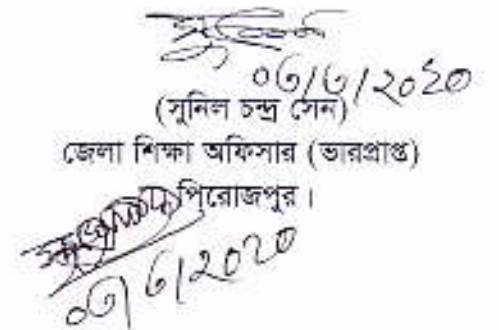 ০৩/৬/২০২০
(সুনিল চন্দ্র সেন)
জেলা শিক্ষা অফিসার (ভারপ্রাপ্ত)
পিরোজপুর।
০৩/৬/২০২০